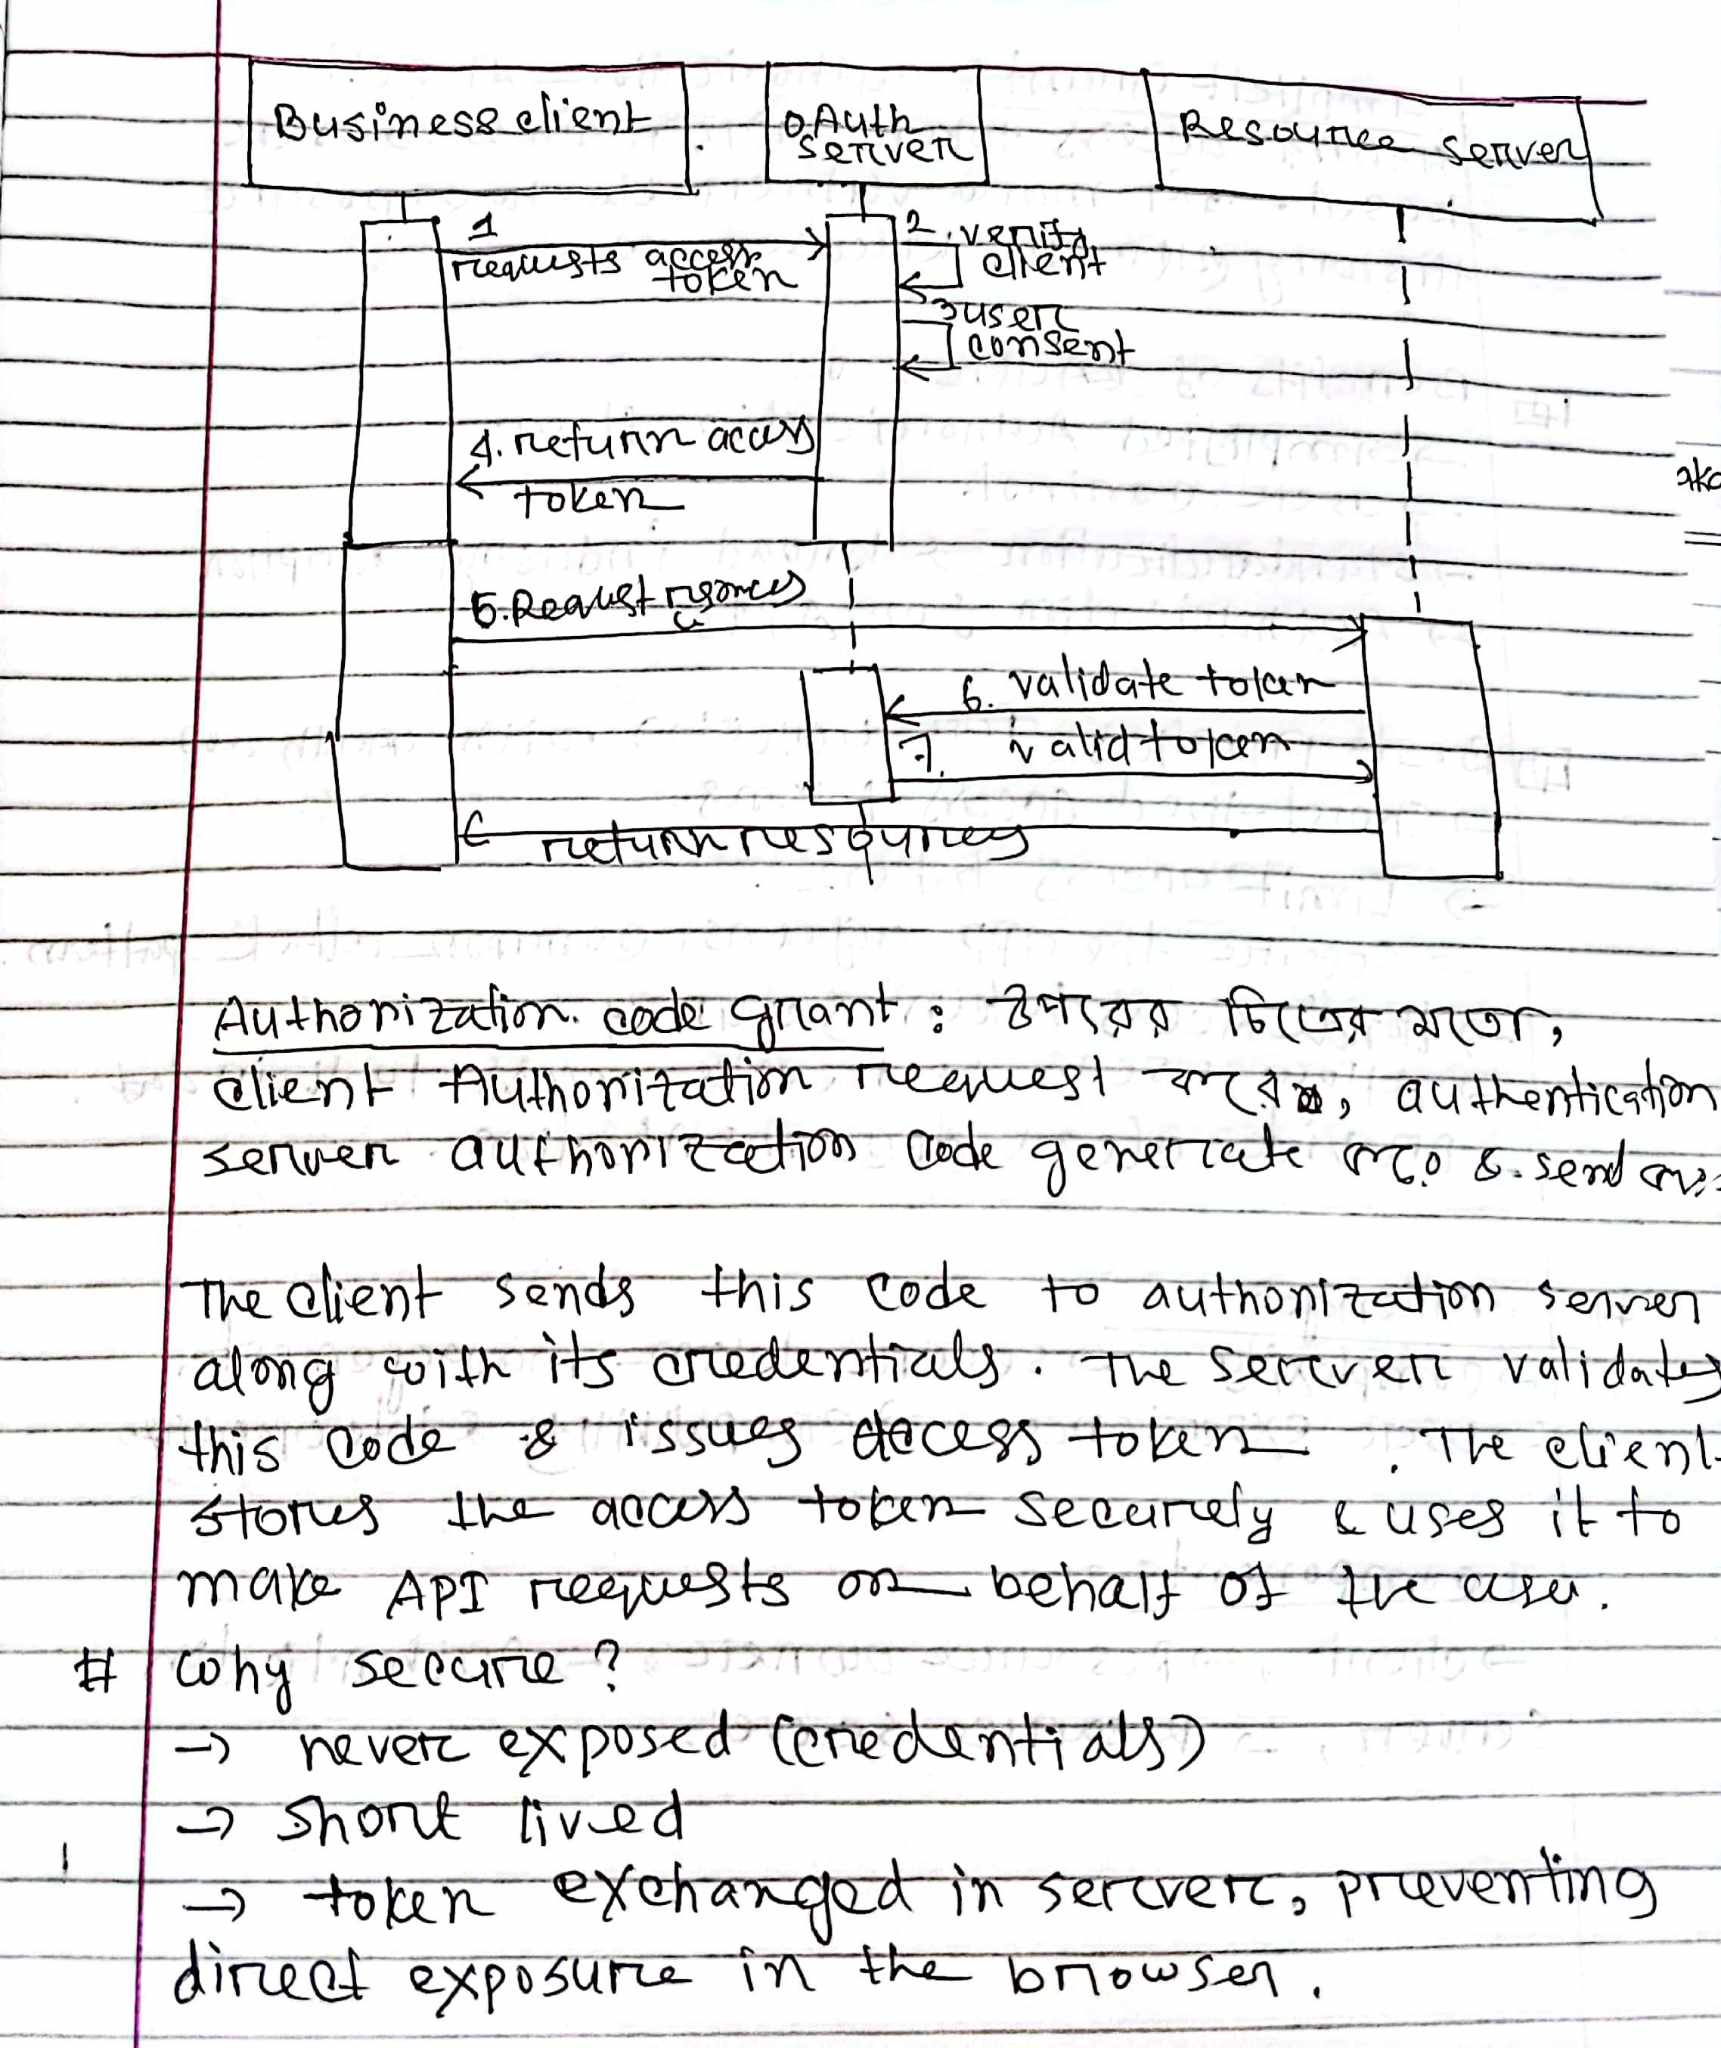 Business client
OAuth
server
Resource server
1
requests access
token
2. verify
client
3 user
consent
4. return access
token
5. Request resources
6. validate token
7. valid token
return resources
Authorization code grant : উপরের চিত্রের মতো,
client Authorization request করে, authentication
server authorization code generate করে & send
The client sends this code to authorization server
along with its credentials. The server validates
this code & issues access token. The client
stores the access token securely & uses it to
make API requests on behalf of the user.
# Why secure ?
→ never exposed (credentials)
→ short lived
→ token exchanged in server, preventing
direct exposure in the browser.